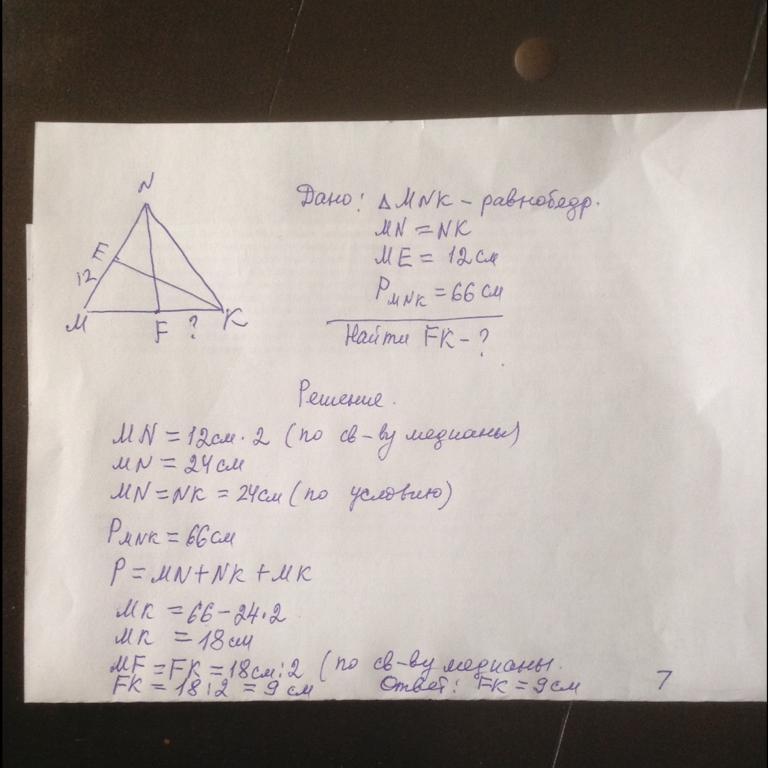 N
E
12
M
F
?
K
Дано: △MNK – равнобедр.
MN = NK
ME = 12 см
P MNK = 66 см
Найти FK – ?
Решение.
MN = 12 см · 2 (по св-ву медианы)
MN = 24 см
MN = NK = 24 см (по условию)
P MNK = 66 см
P = MN + NK + MK
MK = 66 – 24 · 2
MK = 18 см
MF = FK = 18 см : 2 (по св-ву медианы.
FK = 18 : 2 = 9 см Ответ: FK = 9 см
7